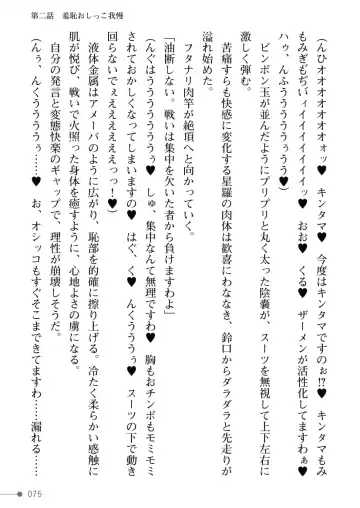 第二話　羞恥おしっこ我慢
（んひオオオオオオオォッ♥　キンタマ♥　今度はキンタマですのぉ⁉♥　キンタマもみ
もみぎもぢぃィイイイイイイッ♥　おお♥　くる♥　ザーメンが活性化してますわぁ♥
ハゥ、んふううううううぅぅうう♥）
ピンポン玉が並んだようにプリプリと丸く太った陰嚢が、スーツを無視して上下左右に
激しく弾む。
苦痛すらも快感に変化する星羅の肉体は歓喜にわななき、鈴口からダラダラと先走りが
溢れ始めた。
フタナリ肉竿が絶頂へと向かっていく。
「油断しない。戦いは集中を欠いた者から負けますわよ」
（んぐはうううううううぅ♥　しゅ、集中なんて無理ですわ♥　胸もおチンポもモミモミ
されておかしくなってしまいますの♥　はぐ、く♥　んくううううぅ♥　スーツの下で動き
回らないでぇえええええっっ！♥）
液体金属はアメーバのように広がり、恥部を的確に擦り上げる。冷たく柔らかい感触に
肌が悦び、戦いで火照った身体を癒すように、心地よさの虜になる。
自分の発言と変態快楽のギャップで、理性が崩壊しそうだ。
（んぅ、んくうううううぅ……♥　お、オシッコもすぐそこまできてますわ……漏れる……
075